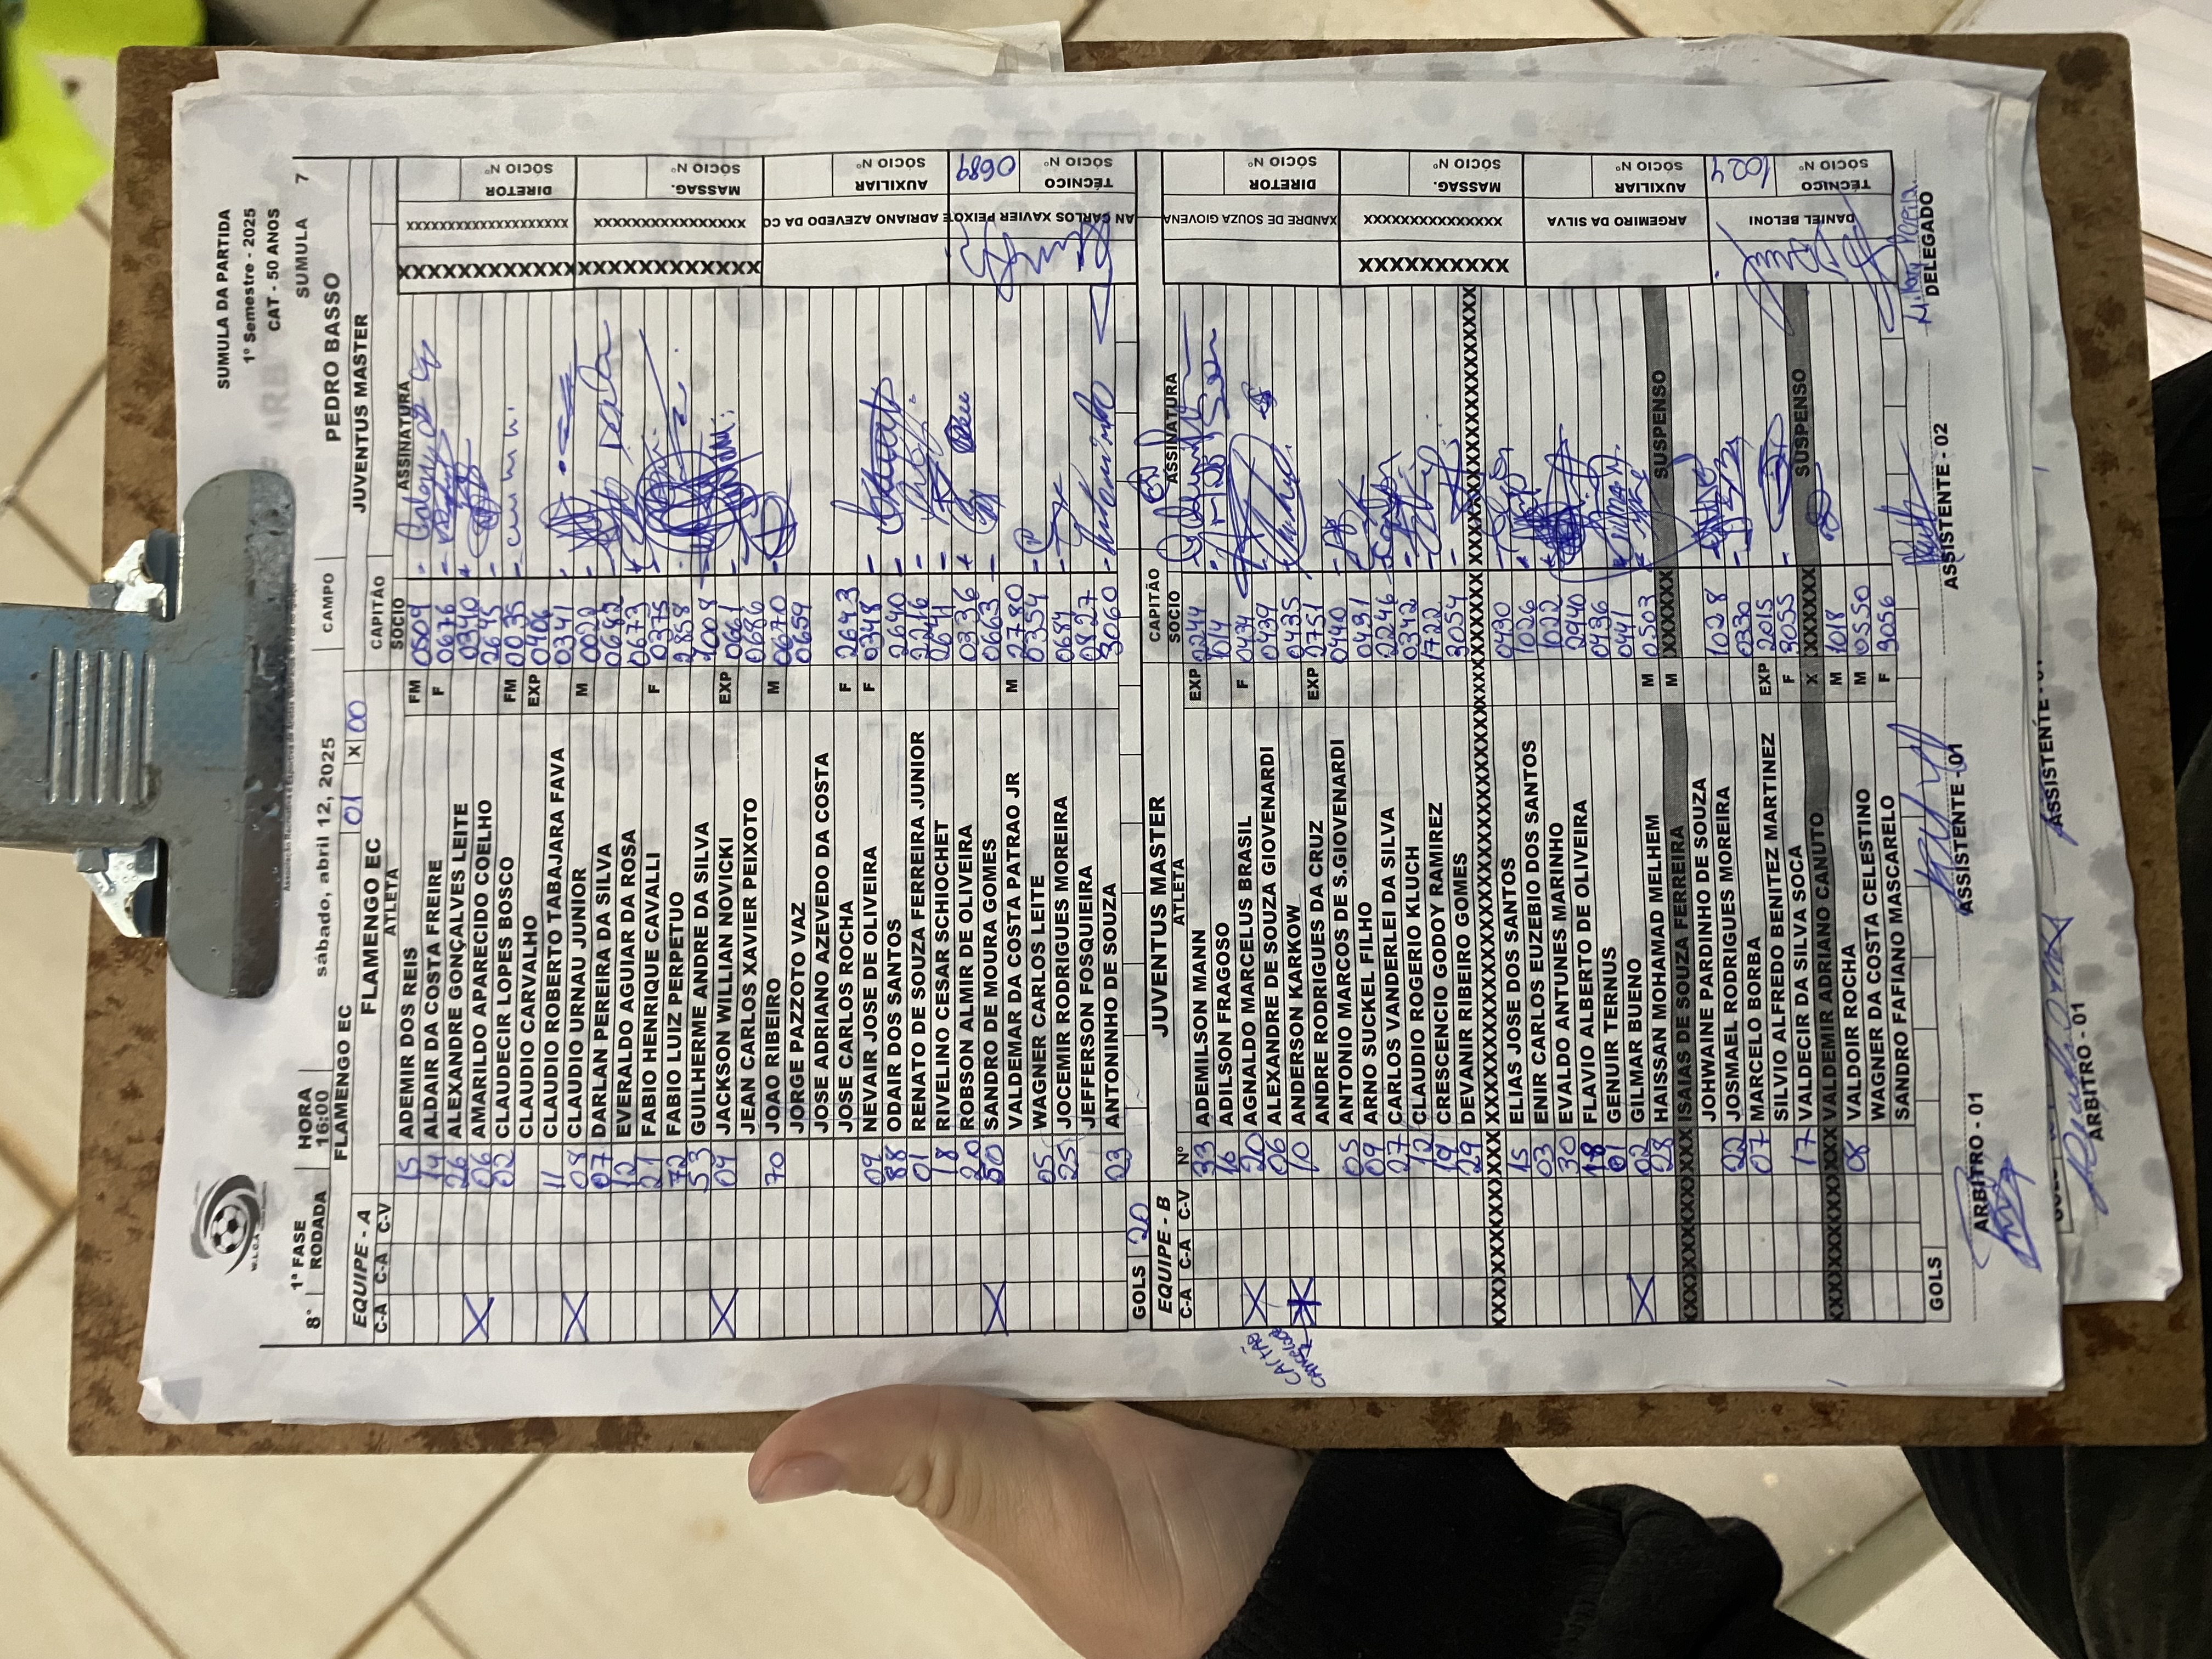 SUMULA DA PARTIDA
1º Semestre - 2025
CAT - 50 ANOS
W.L.C.A
8ª 1ª FASE RODADA HORA 16:00 sábado, abril 12, 2025 CAMPO PEDRO BASSO SUMULA 7
FLAMENGO EC 01 X 00 JUVENTUS MASTER
EQUIPE - A FLAMENGO EC CAPITÃO
C-A C-A C-V ATLETA SOCIO ASSINATURA
15 ADEMIR DOS REIS FM 0509
14 ALDAIR DA COSTA FREIRE F 0676
26 ALEXANDRE GONÇALVES LEITE 0340
X 06 AMARILDO APARECIDO COELHO 2645
02 CLAUDECIR LOPES BOSCO FM 0035
CLAUDIO CARVALHO EXP 0406
11 CLAUDIO ROBERTO TABAJARA FAVA 0341
X 08 CLAUDIO URNAU JUNIOR M 0022
07 DARLAN PEREIRA DA SILVA 0682
12 EVERALDO AGUIAR DA ROSA 0673
21 FABIO HENRIQUE CAVALLI F 0375
72 FABIO LUIZ PERPETUO 2858
53 GUILHERME ANDRE DA SILVA 1008
X 04 JACKSON WILLIAN NOVICKI EXP 0661
JEAN CARLOS XAVIER PEIXOTO 0686
70 JOAO RIBEIRO M 0670
JORGE PAZZOTO VAZ 0659
JOSE ADRIANO AZEVEDO DA COSTA
JOSE CARLOS ROCHA F 2643
09 NEVAIR JOSE DE OLIVEIRA F 0348
88 ODAIR DOS SANTOS 2640
01 RENATO DE SOUZA FERREIRA JUNIOR 2216
18 RIVELINO CESAR SCHIOCHET 0641
20 ROBSSON ALMIR DE OLIVEIRA 0336
X 50 SANDRO DE MOURA GOMES 0663
VALDEMAR DA COSTA PATRAO JR M 2780
05 WAGNER CARLOS LEITE 0354
25 JOCEMIR RODRIGUES MOREIRA 0684
JEFFERSON FOSQUIEIRA 0827
23 ANTONINHO DE SOUZA 3060
GOLS 20
XXXXXXXXXXXXXXXXXXXX DIRETOR SÓCIO Nº
XXXXXXXXXXXXXXXXXXX MASSAG. SÓCIO Nº
E ADRIANO AZEVEDO DA CO AUXILIAR SÓCIO Nº
AN CARLOS XAVIER PEIXOT TÉCNICO SÓCIO Nº 0689
EQUIPE - B JUVENTUS MASTER CAPITÃO
C-A C-A C-V Nº ATLETA SOCIO ASSINATURA
33 ADEMILSON MANN EXP 2244
16 ADILSON FRAGOSO 1014
X 20 AGNALDO MARCELUS BRASIL F 0434
06 ALEXANDRE DE SOUZA GIOVENARDI 0439
10 ANDERSON KARKOW 0435
ANDRE RODRIGUES DA CRUZ EXP 2751
05 ANTONIO MARCOS DE S.GIOVENARDI 0440
09 ARNO SUCKEL FILHO 0431
27 CARLOS VANDERLEI DA SILVA 2246
12 CLAUDIO ROGERIO KLUCH 0342
19 CRESCENCIO GODOY RAMIREZ 1722
29 DEVANIR RIBEIRO GOMES 3054
15 ELIAS JOSE DOS SANTOS 0430
03 ENIR CARLOS EUZEBIO DOS SANTOS 1026
30 EVALDO ANTUNES MARINHO 1022
18 FLAVIO ALBERTO DE OLIVEIRA 2940
01 GENUIR TERNUS 0436
X 02 GILMAR BUENO 0441
28 HAISSAN MOHAMAD MELHEM M 0503
ISAIAS DE SOUZA FERREIRA M XXXXXX SUSPENSO
JOHWAINE PARDINHO DE SOUZA
22 JOSMAEL RODRIGUES MOREIRA M 1028
07 MARCELO BORBA 0330
SILVIO ALFREDO BENITEZ MARTINEZ EXP 2015
17 VALDECIR DA SILVA SOCA F 3055
VALDEMIR ADRIANO CANUTO X XXXXXX SUSPENSO
08 VALDOIR ROCHA M 1018
WAGNER DA COSTA CELESTINO M 0550
SANDRO FAFIANO MASCARELO F 3056
GOLS
XANDRE DE SOUZA GIOVENA DIRETOR SÓCIO Nº
XXXXXXXXXXXXXXXXX MASSAG. SÓCIO Nº
ARGEMIRO DA SILVA AUXILIAR SÓCIO Nº
DANIEL BELONI TÉCNICO SÓCIO Nº 1024
CARTÃO
ARBITRO - 01 ASSISTENTE - 01 ASSISTENTE - 02 DELEGADO
ARBITRO - 01 ASSISTENTE